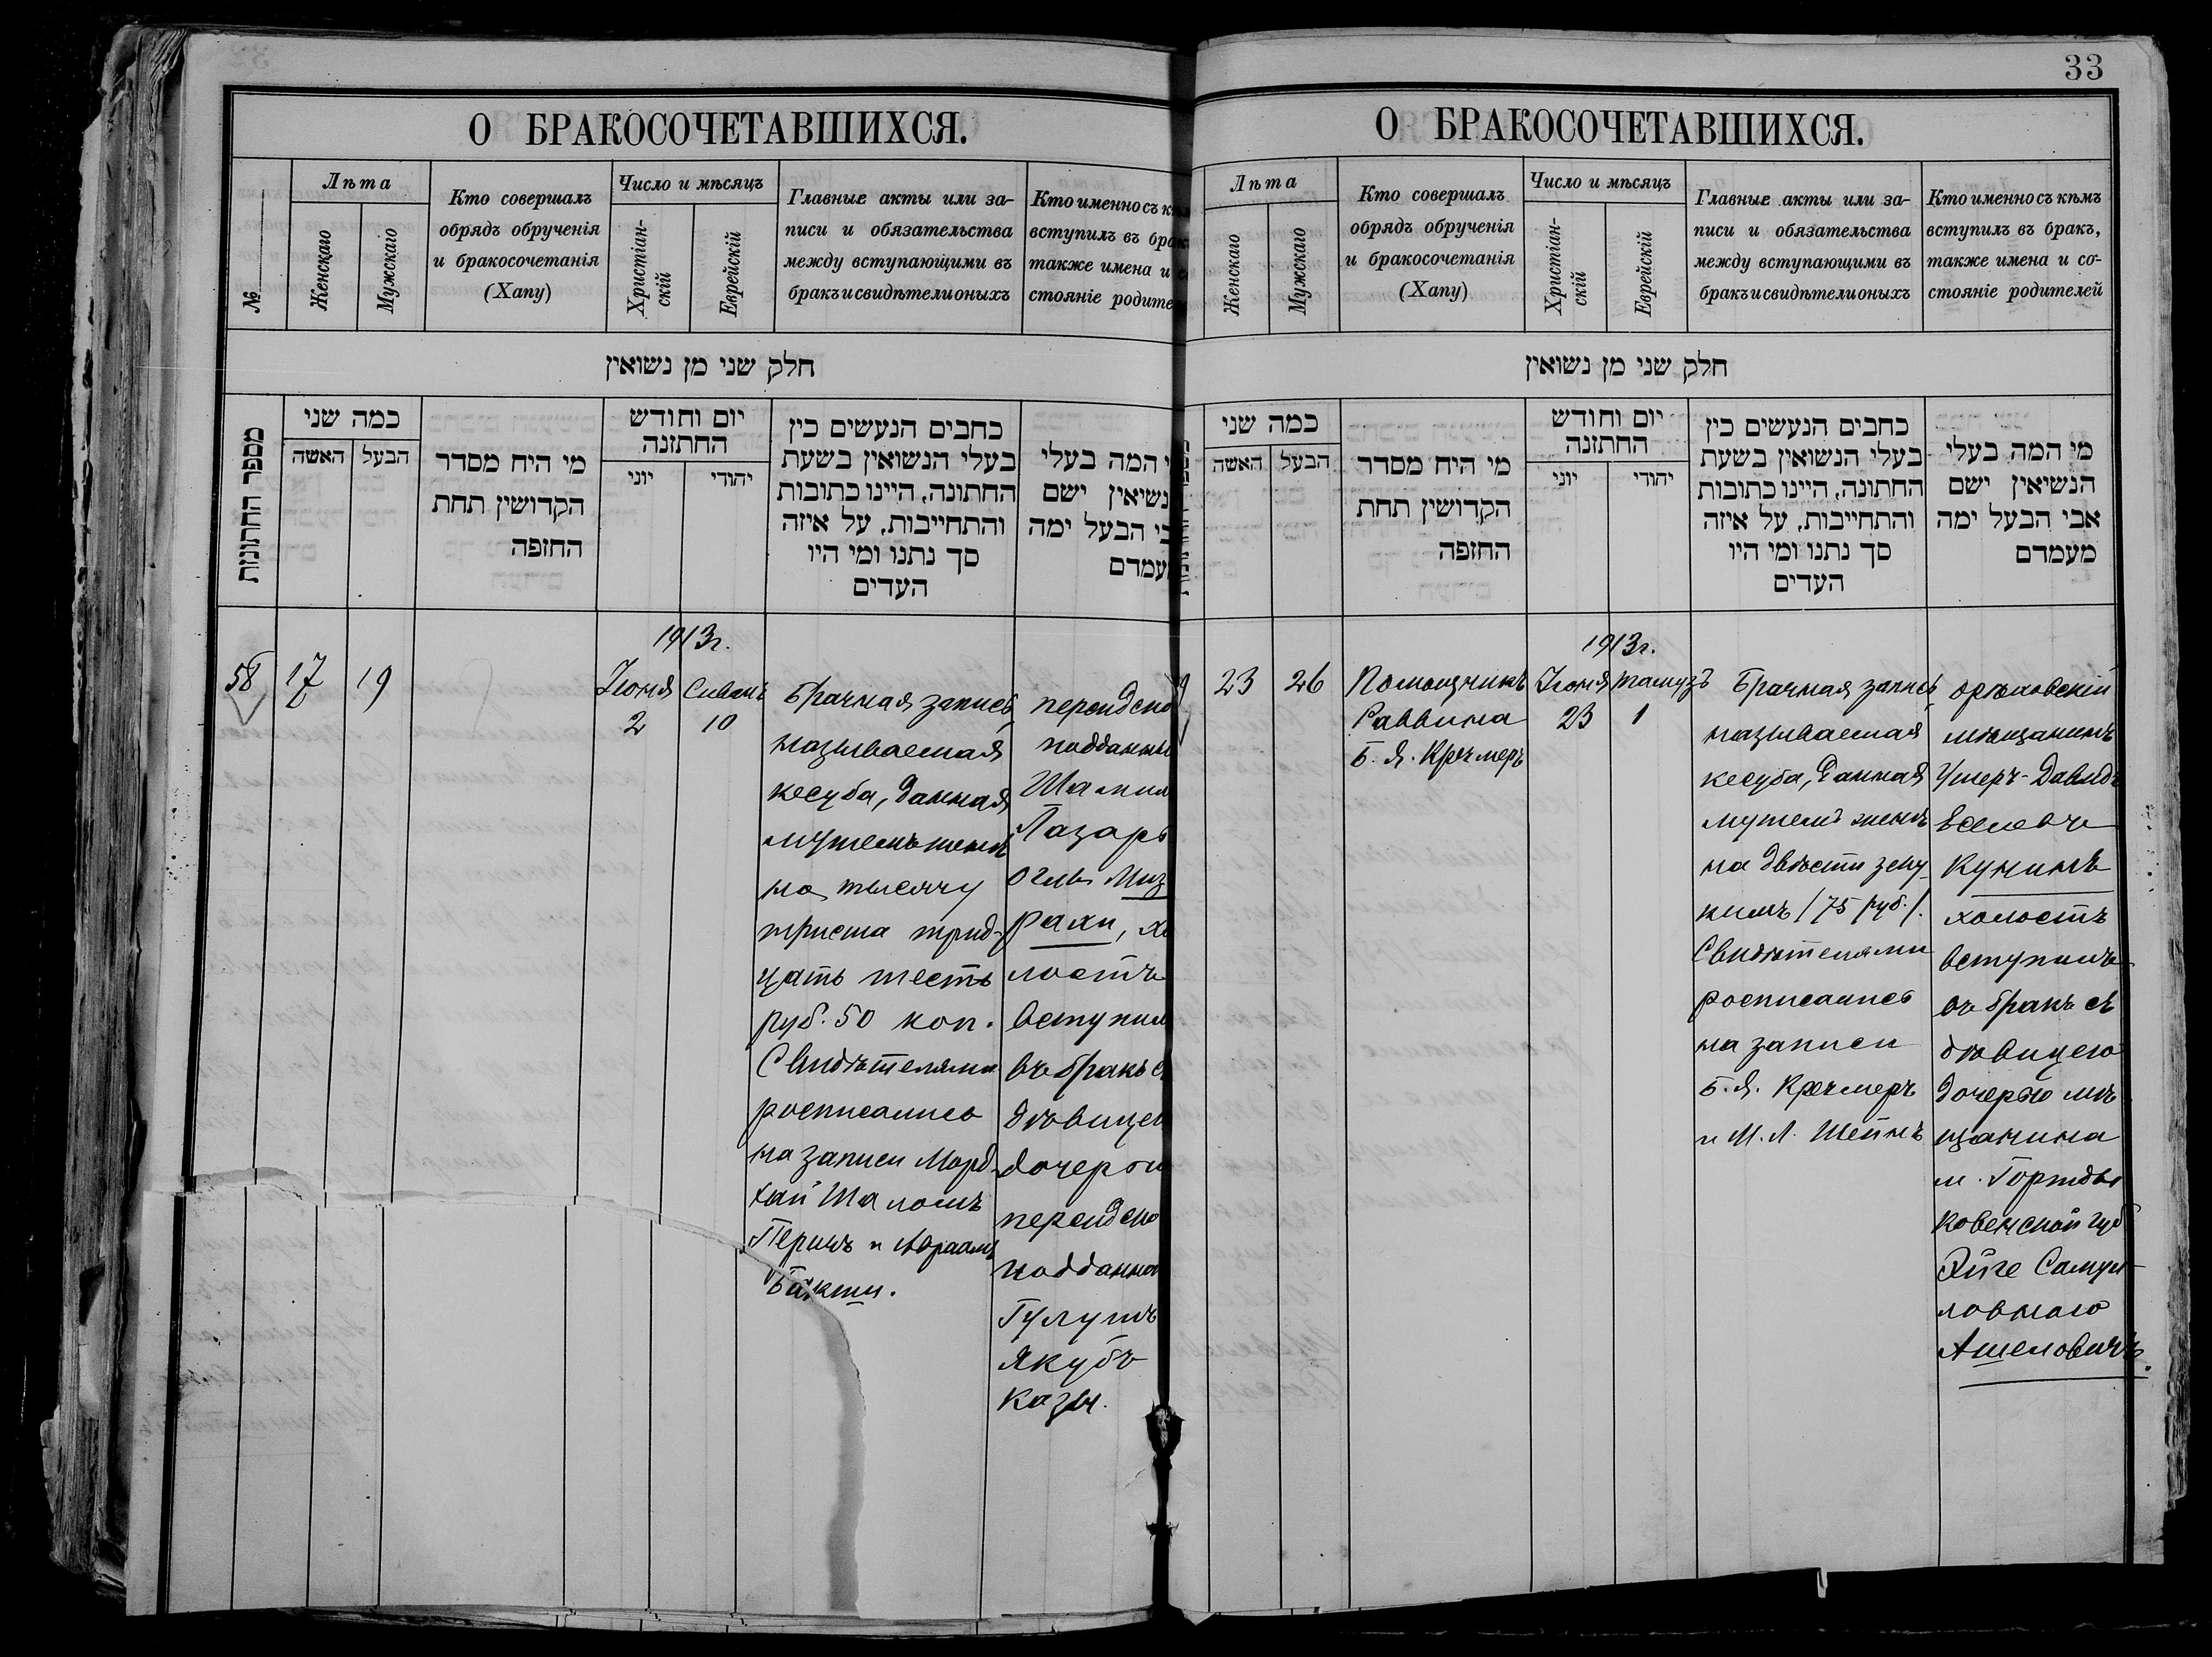 О БРАКОСОЧЕТАВШИХСЯ.
№
Лѣта
Женскаго
Мужскаго
Кто совершалъ
обрядъ обрученія
и бракосочетанія
(Хапу)
Число и мѣсяцъ
Христіан-
скій
Еврейскій
Главные акты или за-
писи и обязательства
между вступающими въ
бракъ и свидѣтели оныхъ
Кто именно съ кѣм
вступилъ въ брак
также имена и с
стояніе родите
חלק שני מן נשואין
מספר החתונות
כמה שני
האשה
הבעל
מי היח מסדר
הקדושין תחת
החופה
יום וחודש
החתונה
יוני
יהודי
כחבים הנעשים כין
בעלי הנשואין בשעת
החתונה, היינו כתובות
והתחייבות, על איזה
סך נתנו ומי היו
העדים
י המה בעלי
נשיאין ישם
בי הבעל ימה
עמדם
58
17
19
1913г.
Іюня
2
Сиванъ
10
Брачная запись,
называемая
кесуба, данная
мужемъ женѣ
на тысячу
триста трид-
цать шесть
руб. 50 коп.
Свидѣтелями
росписались
на записи Морд-
хай Шаломъ
Перицъ и Авраамъ
Бакши.
персидско
подданны
Шамил
Лазарь
Оглы Миз
рахи, хо
лостъ
вступил
въ бракъ съ
дѣвицею
дочерью
персидско
подданна
Гулушъ
Якубъ
Казы.
33
О БРАКОСОЧЕТАВШИХСЯ.
Лѣта
Женскаго
Мужскаго
Кто совершалъ
обрядъ обрученія
и бракосочетанія
(Хапу)
Число и мѣсяцъ
Христіан-
скій
Еврейскій
Главные акты или за-
писи и обязательства
между вступающими въ
бракъ и свидѣтели оныхъ
Кто именно съ кѣмъ
вступилъ въ бракъ,
также имена и со-
стояніе родителей
חלק שני מן נשואין
כמה שני
האשה
הבעל
מי היח מסדר
הקדושין תחת
החופה
יום וחודש
החתונה
יוני
יהודי
כחבים הנעשים כין
בעלי הנשואין בשעת
החתונה, היינו כתובות
והתחייבות, על איזה
סך נתנו ומי היו
העדים
מי המה בעלי
הנשיאין ישם
אבי הבעל ימה
מעמדם
9
23
26
Помощникъ
Раввина
Б. Я. Кречмеръ
1913г.
Іюня
23
Тамузъ
1
Брачная запись,
называемая
кесуба, данная
мужемъ женѣ
на двѣсти зеку
кимъ /75 руб./.
Свидѣтелями
росписались
на записи
Б. Я. Кречмеръ
и М. Л. Шейнъ
орѣховскій
мѣщанинъ
Ушеръ-Давидъ
Евелевъ
Кунинъ
холостъ
вступилъ
въ бракъ съ
дѣвицею
дочерью мѣ
щанина
м. Горжды
Ковенской губ
Эйге Самуи-
ловною
Ашеловичъ.